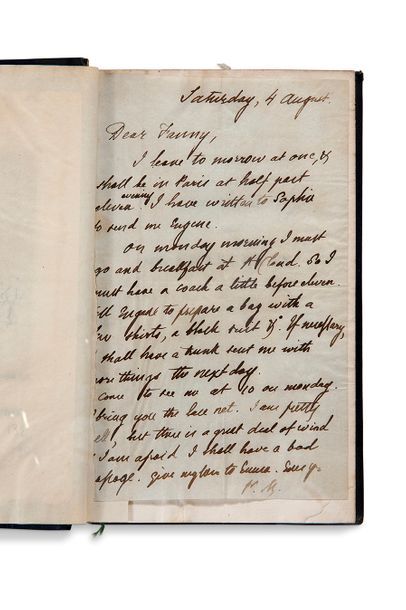 Saturday, 4 August.
Dear Fanny,
I leave to morrow at one, &
shall be in Paris at half past
eleven evening. I have written to Sophie
to send me Eugene.
On monday morning I must
go and breakfast at St Cloud. So I
must have a coach a little before eleven.
Tell Eugene to prepare a bag with a
few shirts, a black suit &c. If necessary,
I shall have a trunk sent me with
more things the next day.
Come to see me at 10 on monday.
I bring you the lace net. I am pretty
well, but there is a great deal of wind
& I am afraid I shall have a bad
passage. Give my love to Emma.
P. M.